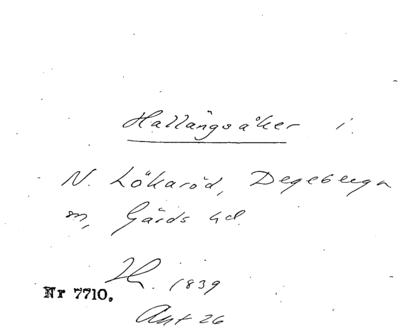 Hallängsåker i
N. Lökaröd, Degeberga
sn, Gärds hd.
1839
Nr 7710.
Akt 26